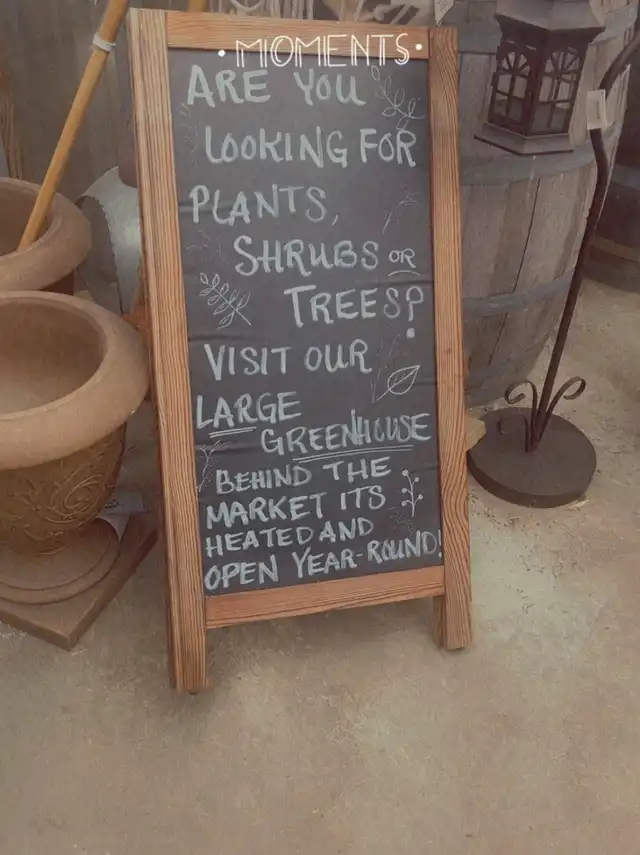 • MOMENTS •
ARE YOU
LOOKING FOR
PLANTS,
SHRUBS OR
TREES?
VISIT OUR
LARGE
GREENHOUSE
BEHIND THE
MARKET ITS
HEATED AND
OPEN YEAR-ROUND!